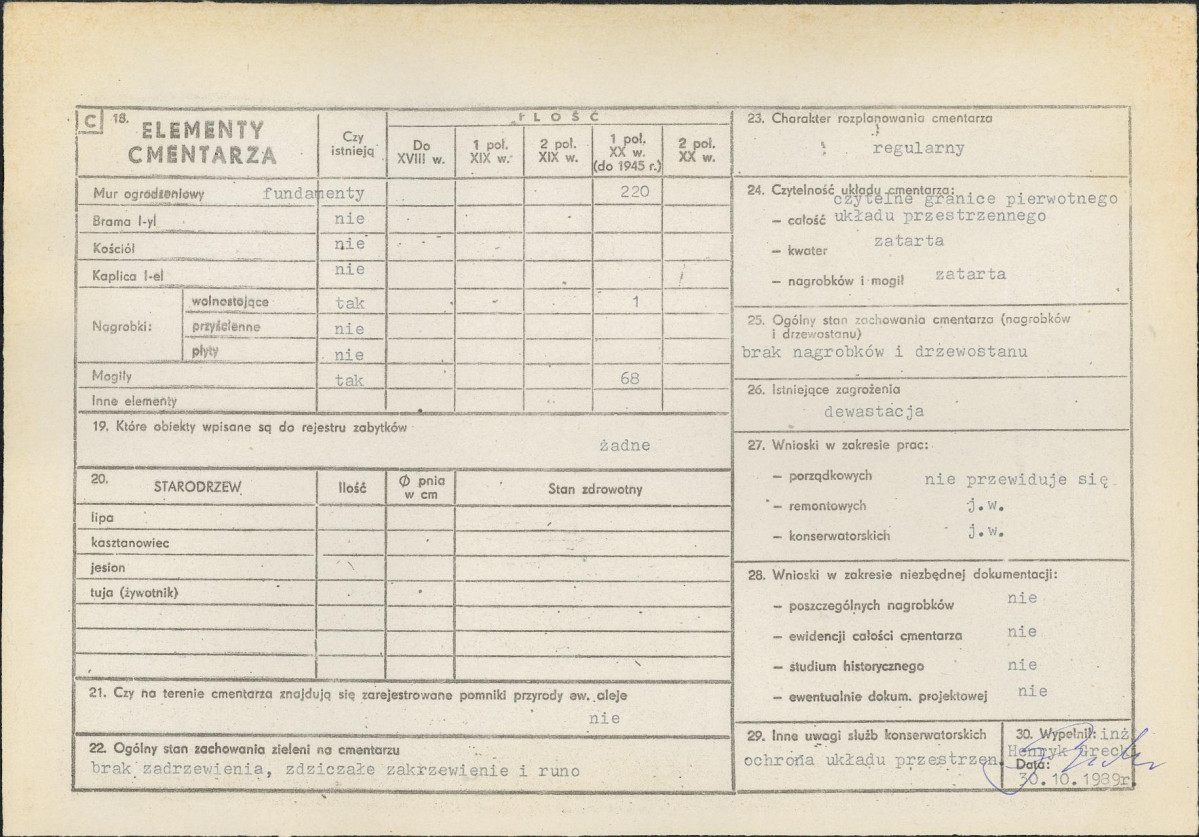 C 18. ELEMENTY CMENTARZA
Czy istnieją
ILOŚĆ
Do XVIII w.
1 poł. XIX w.
2 poł. XIX w.
1 poł. XX w. (do 1945 r.)
2 poł. XX w.
Mur ogrodzeniowy fundamenty 220
Brama I-yl nie
Kościół nie
Kaplica I-el nie
Nagrobki:
wolnostojące tak 1
przyścienne nie
płyty nie
Mogiły tak 68
Inne elementy
19. Które obiekty wpisane są do rejestru zabytków
żadne
20. STARODRZEW Ilość Ø pnia w cm Stan zdrowotny
lipa
kasztanowiec
jesion
tuja (żywotnik)
21. Czy na terenie cmentarza znajdują się zarejestrowane pomniki przyrody ew. aleje
nie
22. Ogólny stan zachowania zieleni na cmentarzu
brak zadrzewienia, zdziczałe zakrzewienie i runo
23. Charakter rozplanowania cmentarza
regularny
24. Czytelność układu cmentarza:
czytelne granice pierwotnego
— całość układu przestrzennego
— kwater zatarta
— nagrobków i mogił zatarta
25. Ogólny stan zachowania cmentarza (nagrobków
i drzewostanu)
brak nagrobków i drzewostanu
26. Istniejące zagrożenia
dewastacja
27. Wnioski w zakresie prac:
— porządkowych nie przewiduje się
— remontowych j.w.
— konserwatorskich j.w.
28. Wnioski w zakresie niezbędnej dokumentacji:
— poszczególnych nagrobków nie
— ewidencji całości cmentarza nie
— studium historycznego nie
— ewentualnie dokum. projektowej nie
29. Inne uwagi służb konserwatorskich
ochrona układu przestrzen.
30. Wypełnił: inż
Henryk Grecki
Data:
30.10.1989r.